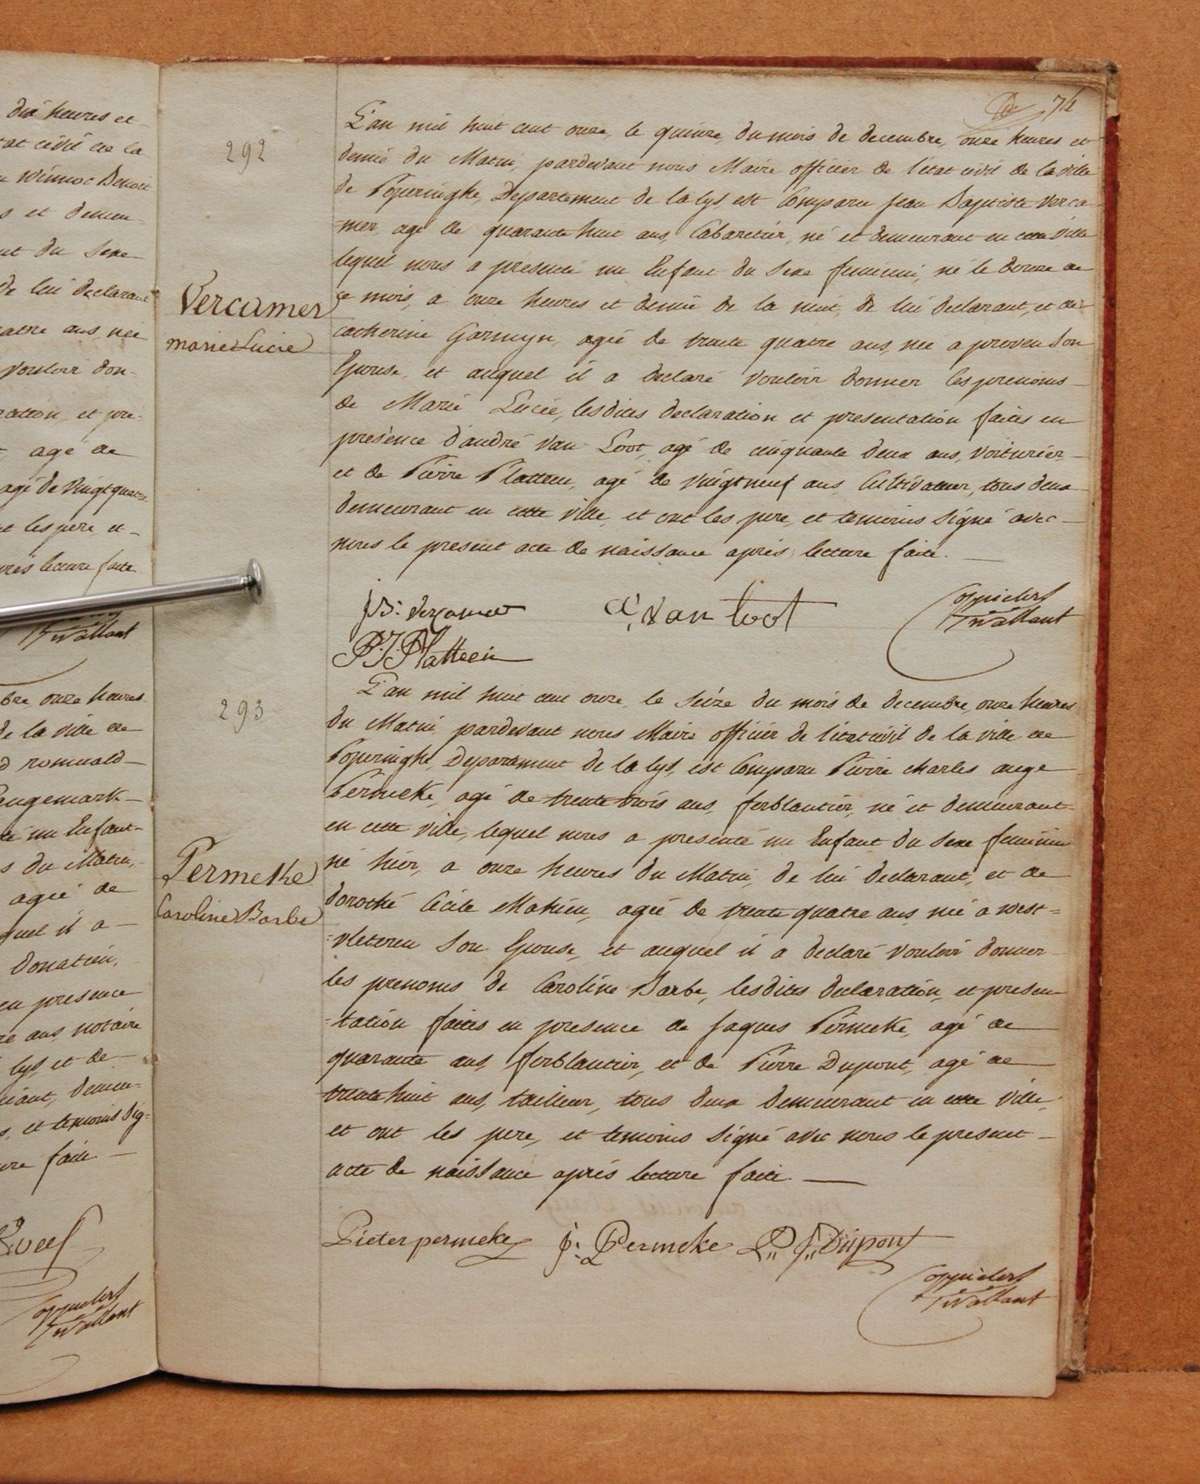 dix heures et
tat civil de la
Winnoc Benoit
s et demeu-
nt du Sexe
de lui declarant
quatre ans, née
vouloir don-
ration et pre-
agé de
agé de vingt quatre
les pere et
près lecture faite
Tivallant
bre onze heures
de la ville de
romuald
Langemark
té un Enfant
s du Matin,
agée de
quel il a
Donatien,
en presence
re ans, notaire
lys, et de
demeu-
s, et temoins sig-
ure faite
74
292
Vercamer
marie Lucie
L'an mil huit cent onze, le quinze, du mois de decembre, onze heures et
demie du Matin, pardevant nous Maire officier de l'état civil de la ville
de Poperinghe, Departement de la lys est Comparu jean Baptiste Verca
mer, agé de quarante huit ans, Cabaretier, né et demeurant en cette ville
lequel nous a presenté un Enfant du Sexe feminin, né le douze de
ce mois, a onze heures et demie de la nuit, de lui declarant, et de
catherine Garmyn, agée de trente quatre ans, née a proven son
Epouse, et auquel il a declaré vouloir donner les prenoms
de Marie Lucie, lesdites declaration et presentation faites en
presence d'andré Van Loot, agé de cinquante deux ans, voiturier,
et de Pierre Platteeu, agé de vingt neuf ans Cultivateur, tous deux
demeurant en cette ville, et ont les pere, et temoins signé avec
nous le present acte de naissance après lecture faite.
j.B: Vercamer
A. Van Loot
P.J. Platteeu
293
Permeke
Caroline Barbe
L'an mil huit cent onze, le seize du mois de decembre, onze heures
du Matin, pardevant nous Maire officier de l'état civil de la ville de
Poperinghe, Departement de la lys, est Comparu Pierre charles ange
Permeke, agé de trente trois ans, ferblantier, né et demeurant
en cette ville, lequel nous a presenté un Enfant du sexe feminin
né hier, a onze heures du Matin, de lui declarant, et de
dorothé Cécile Mahieu, agée de trente quatre ans, née a west=
=vleteren son Epouse, et auquel il a declaré vouloir donner
les prenoms de Caroline Barbe, lesdites declaration, et presen
=tation faites en presence de jaques Permeke, agé de
quarante ans, ferblantier, et de Pierre Dupont, agé de
trente huit ans, tailleur, tous deux demeurant en cette ville,
et ont les pere, et temoins signé avec nous le present
acte de naissance après lecture faite.
Pieter permeke
j: Permeke
P: J: Dupont